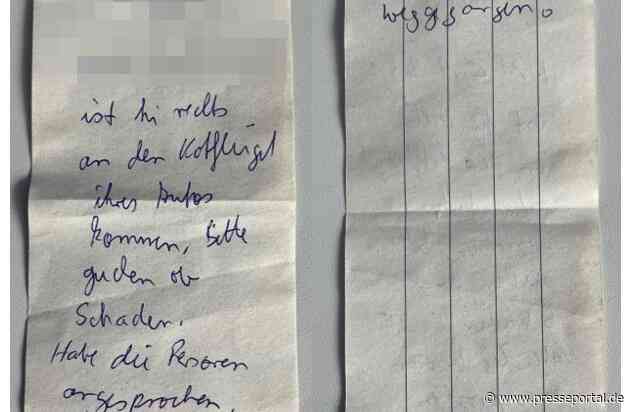 ist hi rechts
an den Kotflügel
ihres Autos
kommen, bitte
gucken ob
Schaden.
Habe die Personen
angesprochen,
weggegangen.
© www.presseportal.de